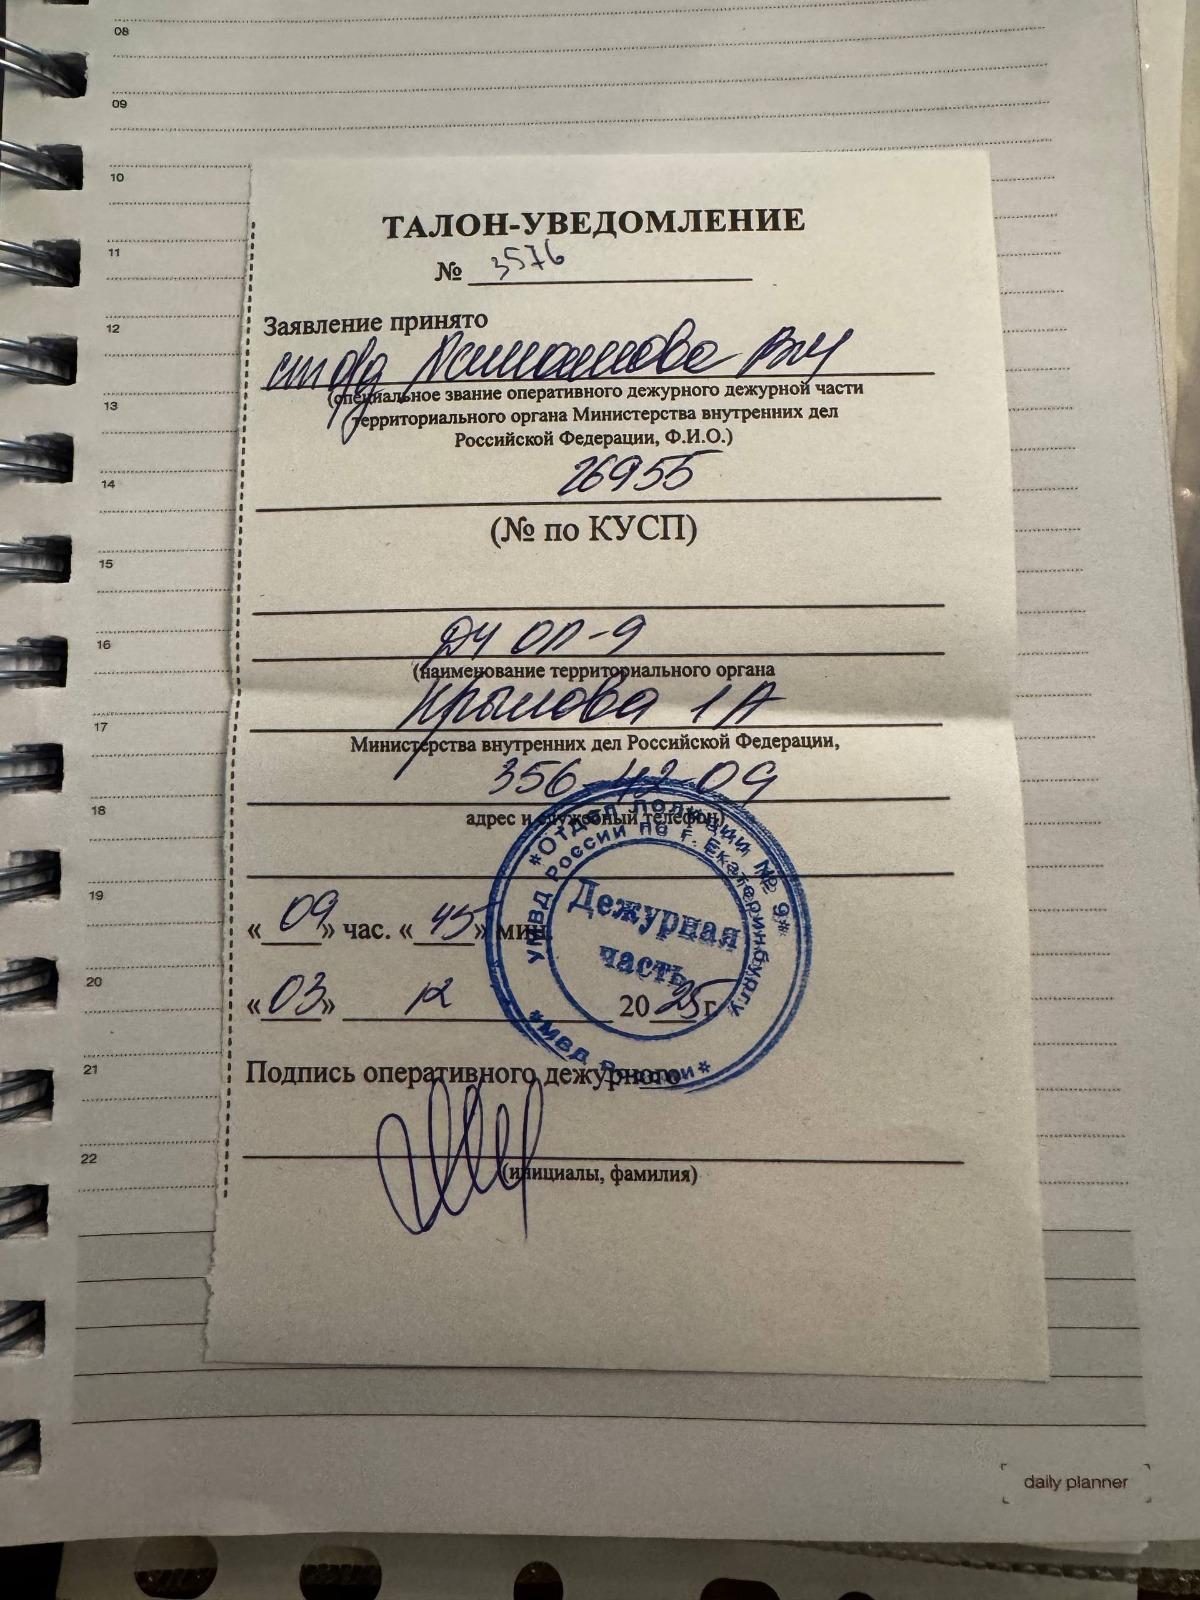 08
09
10
ТАЛОН-УВЕДОМЛЕНИЕ
11
№ 3576
12
Заявление принято
(специальное звание оперативного дежурного дежурной части
13
территориального органа Министерства внутренних дел
Российской Федерации, Ф.И.О.)
14
26955
(№ по КУСП)
15
16
ДЧ ОП-9
(наименование территориального органа
17
Крылова 1А
Министерства внутренних дел Российской Федерации,
356-42-09
18
адрес и служебный телефон)
*Отдел полиции № 9*
УМВД России по г. Екатеринбургу
Дежурная
часть
*МВД России*
19
«09» час. «45» мин.
20
«03» 12 2025 г.
21
Подпись оперативного дежурного
22
(инициалы, фамилия)
daily planner